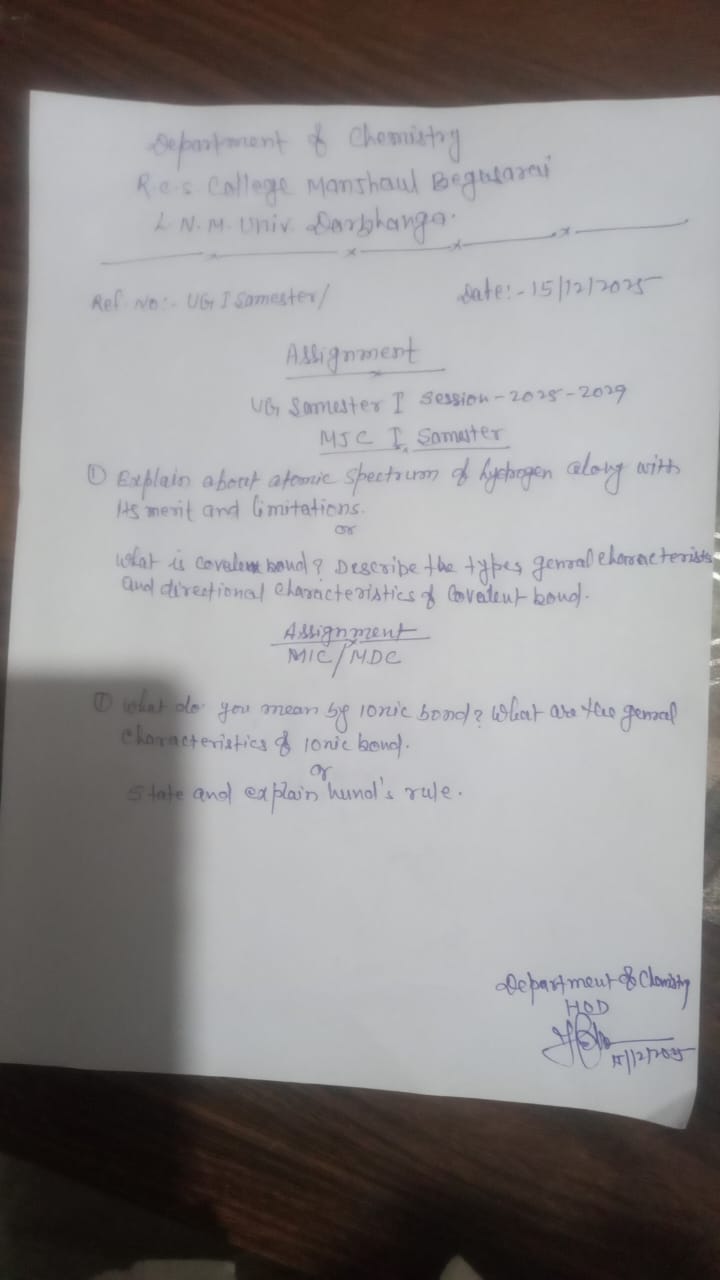 Department of Chemistry
R.C.S College Manjhaul Begusarai
L. N. M. Univ Darbhanga.
Ref. No:- UG I Samester/
Date:- 15/12/2025
Assignment
UG Samester I Session-2025-2029
MJC I Samester
① Explain about atomic spectrum of hydrogen along with
Its merit and limitations.
or
What is covalent bond? Describe the types, genral characterists
and directional characteristics of covalent bond.
Assignment
MIC/MDC
① What do you mean by ionic bond? What are the genral
characteristics of ionic bond.
or
State and explain hund's rule.
Department of Chemistry
HOD
15/12/2025